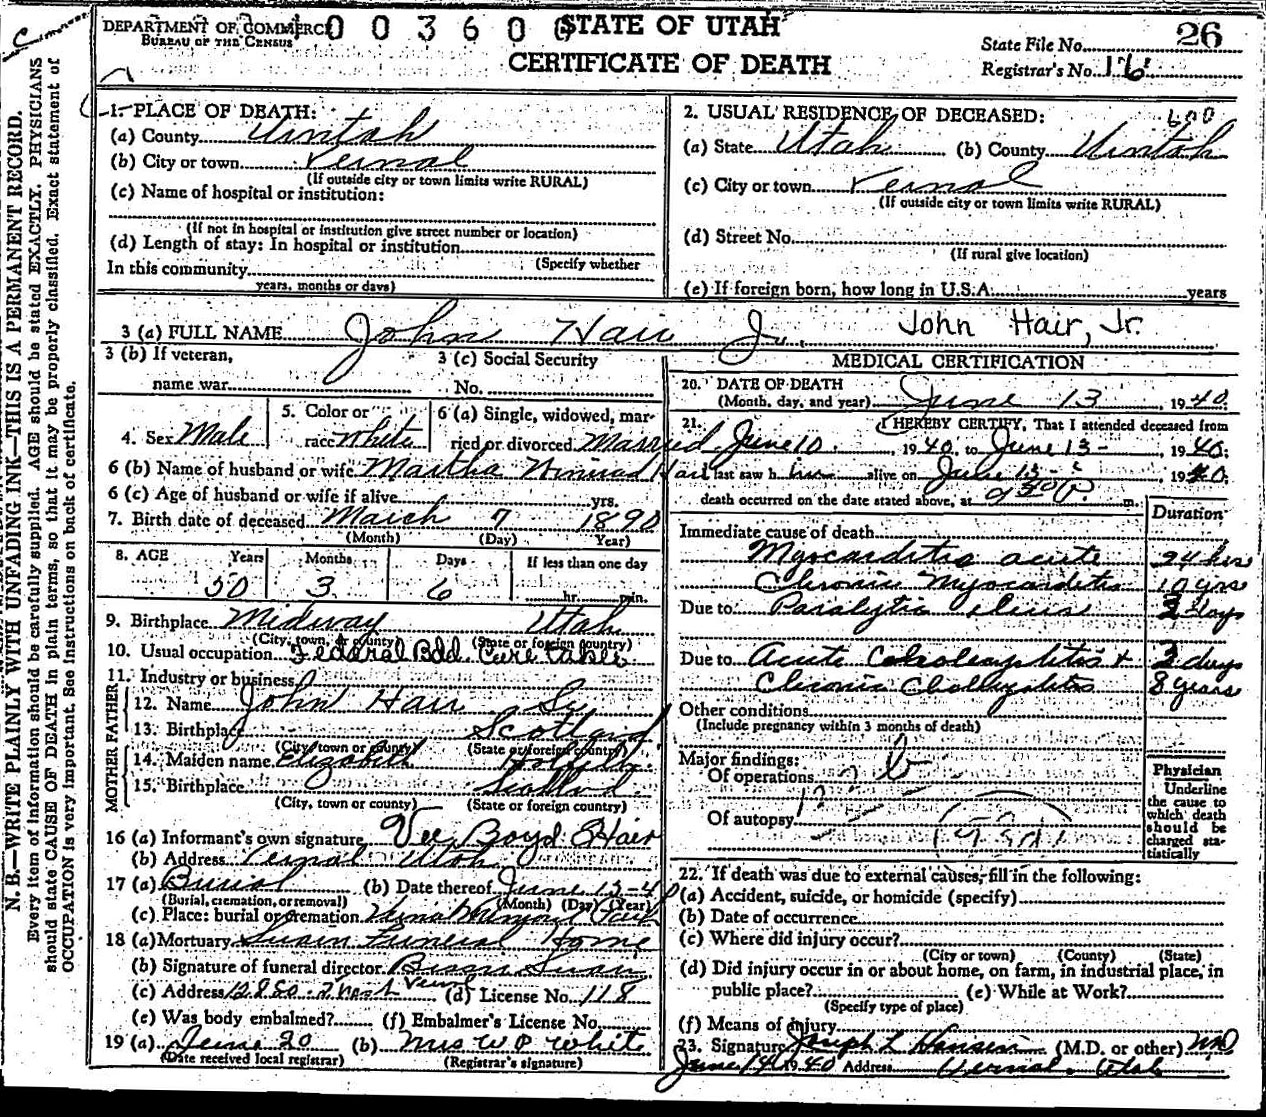 DEPARTMENT OF COMMERCE
BUREAU OF THE CENSUS
003600
STATE OF UTAH
CERTIFICATE OF DEATH
26
State File No.
Registrar's No. 176
N. B.—WRITE PLAINLY WITH UNFADING INK—THIS IS A PERMANENT RECORD.
Every item of information should be carefully supplied. AGE should be stated EXACTLY. PHYSICIANS
should state CAUSE OF DEATH in plain terms, so that it may be properly classified. Exact statement of
OCCUPATION is very important. See instructions on back of certificate.
1. PLACE OF DEATH:
(a) County Uintah
(b) City or town Vernal
(If outside city or town limits write RURAL)
(c) Name of hospital or institution:
(If not in hospital or institution give street number or location)
(d) Length of stay: In hospital or institution
(Specify whether
In this community
years, months or days)
2. USUAL RESIDENCE OF DECEASED: 600
(a) State Utah (b) County Uintah
(c) City or town Vernal
(If outside city or town limits write RURAL)
(d) Street No.
(If rural give location)
(e) If foreign born, how long in U.S.A. years
3 (a) FULL NAME John Hair Jr. John Hair, Jr.
3 (b) If veteran,
name war
3 (c) Social Security
No.
4. Sex Male
5. Color or
race White
6 (a) Single, widowed, mar-
ried or divorced Married
6 (b) Name of husband or wife Martha Hair
6 (c) Age of husband or wife if alive yrs.
7. Birth date of deceased March 7 1890
(Month) (Day) Year)
8. AGE Years Months Days If less than one day
50 3 6 hr. min.
9. Birthplace Midway Utah
(City, town, or county) (State or foreign country)
10. Usual occupation Federal Bldd. Care taker
11. Industry or business
FATHER
12. Name John Hair Sr
13. Birthplace Scotland
(City, town or county) (State or foreign country)
MOTHER
14. Maiden name Elizabeth
15. Birthplace Scotland
(City, town or county) (State or foreign country)
16 (a) Informant's own signature Vee Boyd Hair
(b) Address Vernal Utah
17 (a) Burial (b) Date thereof June 15-40
(Burial, cremation, or removal) (Month) (Day) (Year)
(c) Place: burial or cremation Park
18 (a) Mortuary Swain Funeral Home
(b) Signature of funeral director Swain
(c) Address Vernal (d) License No. 118
(e) Was body embalmed? (f) Embalmer's License No.
19 (a) June 20 (b) Mrs W P White
(Date received local registrar) (Registrar's signature)
MEDICAL CERTIFICATION
20. DATE OF DEATH
(Month, day, and year) June 13, 1940
21. I HEREBY CERTIFY, That I attended deceased from
June 10, 1940, to June 13-, 1940;
I last saw h him alive on June 13-, 1940;
death occurred on the date stated above, at 9 30 P. m.
Duration
Immediate cause of death
Myocarditis acute 24 hrs
Chronic Myocarditis 10 yrs
Due to Paralytic ileus 2 days
Due to Acute Cholecystitis + 3 days
Chronic Cholecystitis 8 years
Other conditions
(Include pregnancy within 3 months of death)
Major findings:
Of operations
Of autopsy
Physician
Underline
the cause to
which death
should be
charged sta-
tistically
22. If death was due to external causes, fill in the following:
(a) Accident, suicide, or homicide (specify)
(b) Date of occurrence
(c) Where did injury occur?
(City or town) (County) (State)
(d) Did injury occur in or about home, on farm, in industrial place, in
public place? (e) While at Work?
(Specify type of place)
(f) Means of injury
23. Signature Joseph L Hansen (M.D. or other) MD
June 14 1940 Address Vernal, Utah